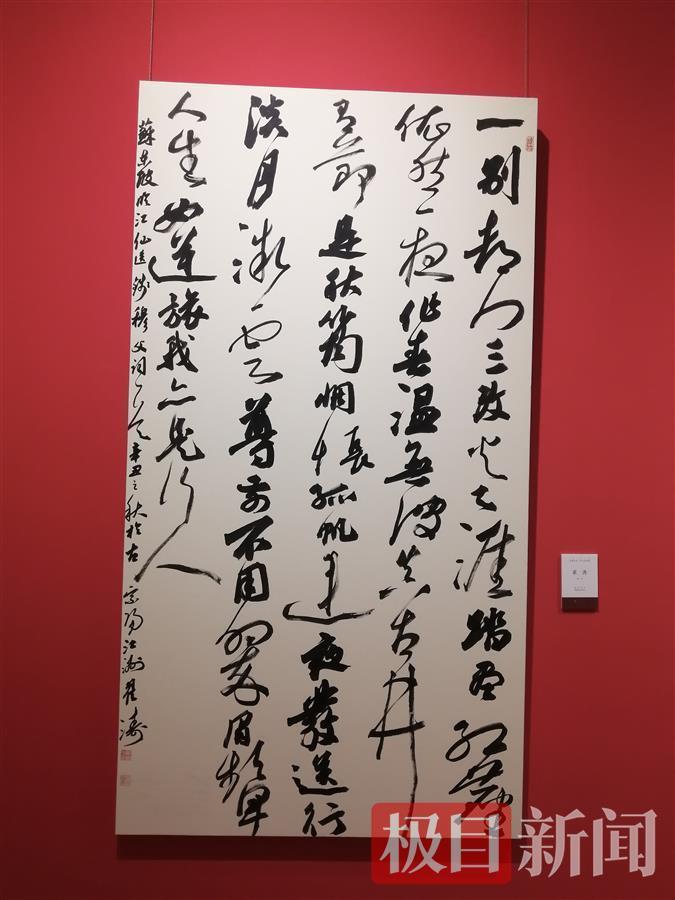 一别都门三改火天涯踏尽红塵
依然一笑作春温無波真古井
有節是秋筠惆悵孤帆連夜發送行
淡月微云尊前不用翠眉颦
人生如逆旅我亦是行人
蘇東坡临江仙送钱穆父词一首辛丑之秋於古
极目新闻